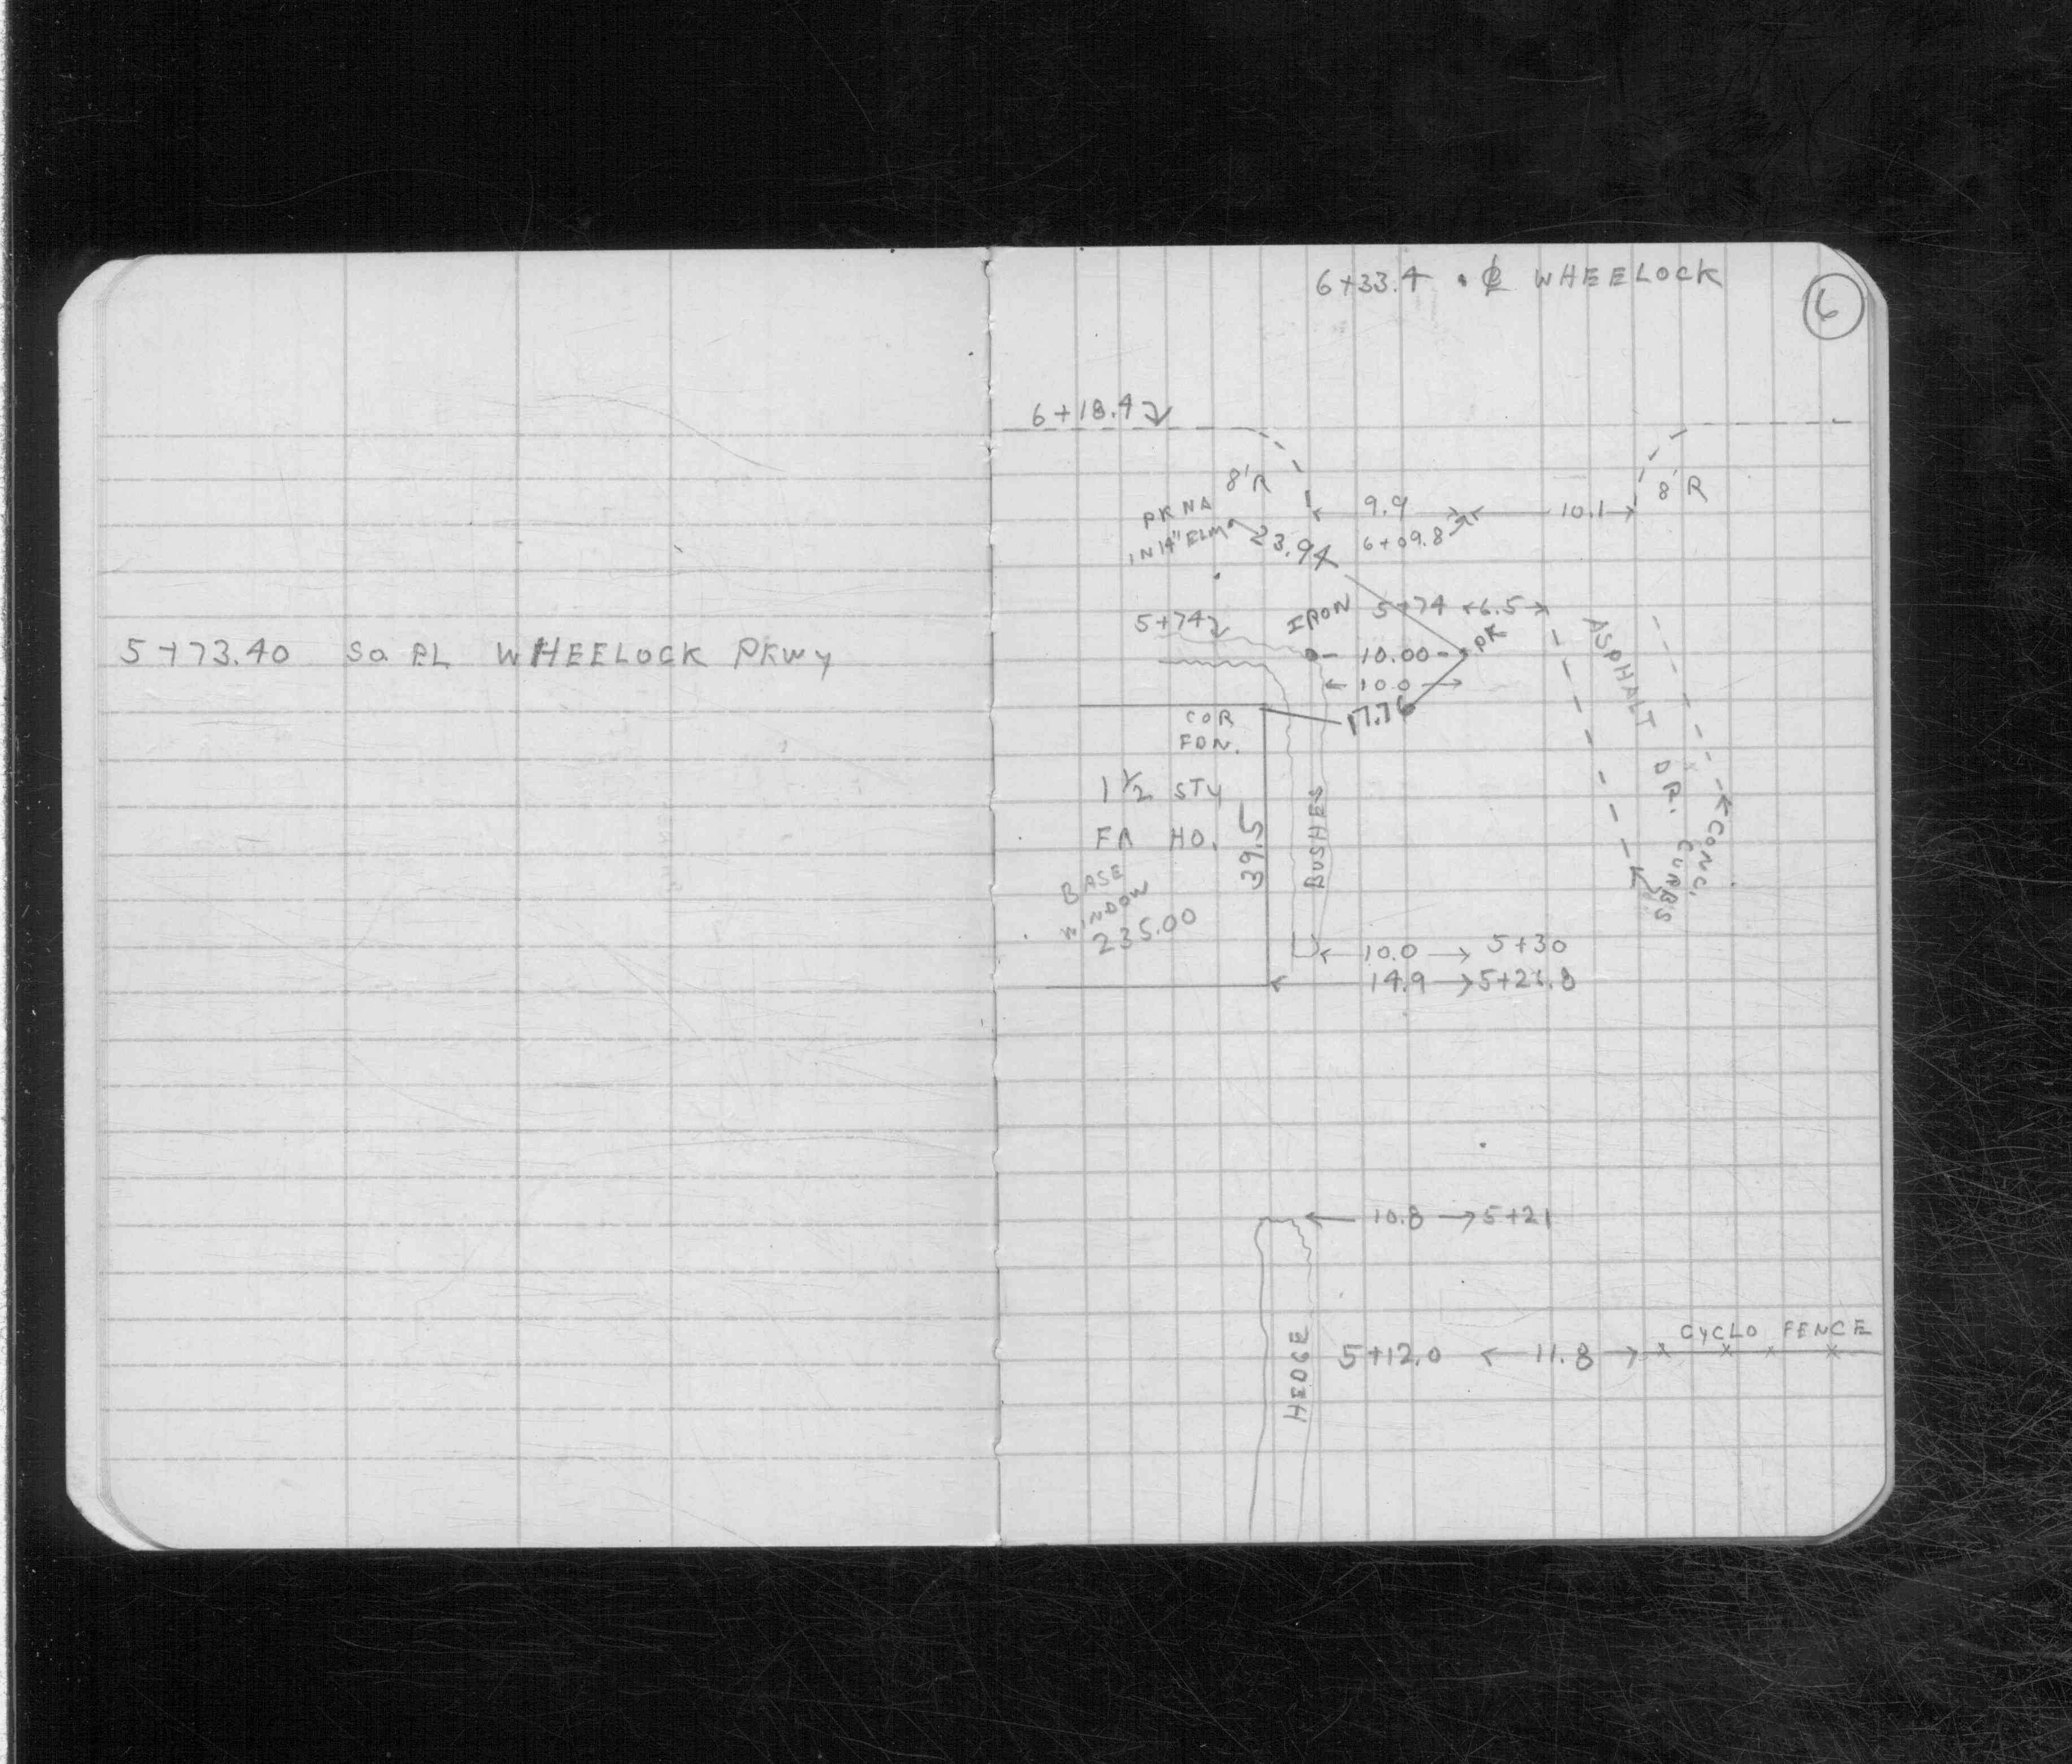 5+73.40 So. PL WHEELOCK PKWY
6+33.4 ℄ WHEELOCK
6
6+18.4
8'R
8'R
PK NA
IN 14" ELM
9.9
10.1
23.94
6+09.8
5+74
IRON
5+74
6.5
PK
10.00
10.0
17.76
COR
FDN.
1 1/2 STY
FR HO.
BASE
WINDOW
235.00
39.5
BUSHES
ASPHALT DR.
CONC.
CURBS
10.0 5+30
14.9
10.8 5+21
HEDGE
5+12.0 11.8
CYCLO FENCE